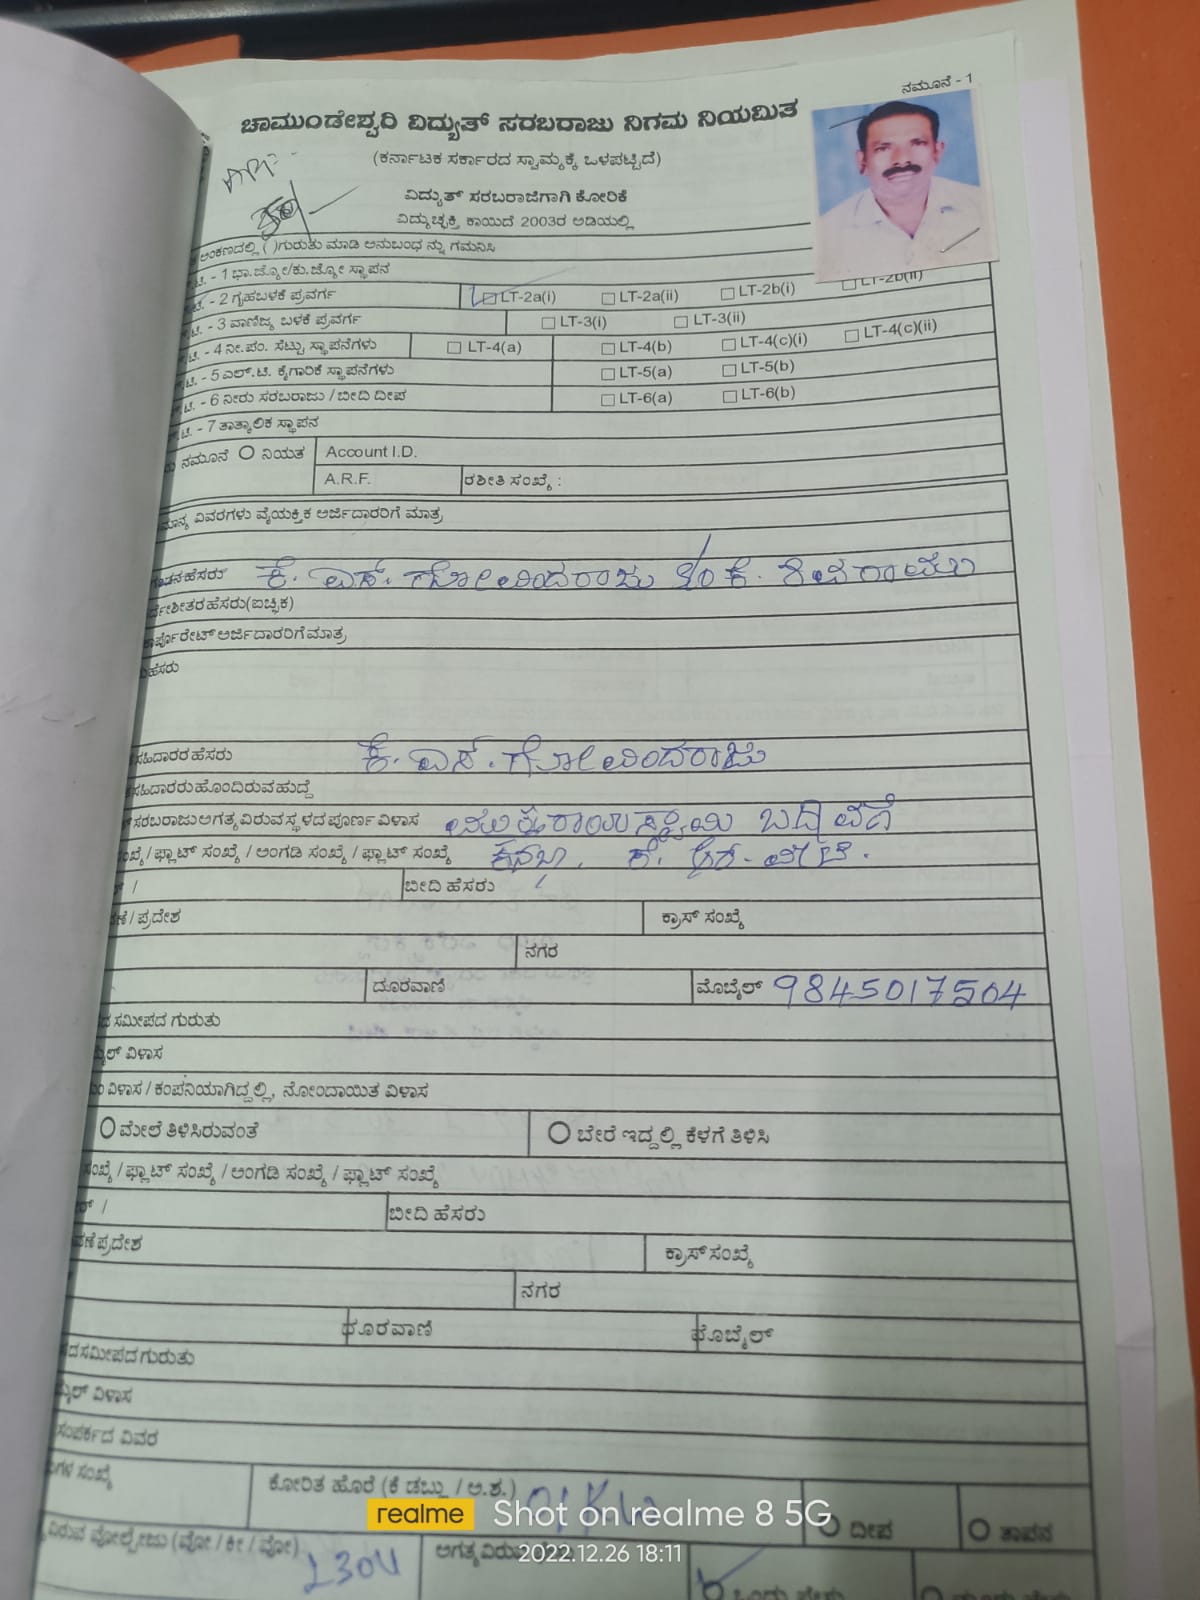 ನಮೂನೆ - 1
ಚಾಮುಂಡೇಶ್ವರಿ ವಿದ್ಯುತ್ ಸರಬರಾಜು ನಿಗಮ ನಿಯಮಿತ
(ಕರ್ನಾಟಕ ಸರ್ಕಾರದ ಸ್ವಾಮ್ಯಕ್ಕೆ ಒಳಪಟ್ಟಿದೆ)
ವಿದ್ಯುತ್ ಸರಬರಾಜಿಗಾಗಿ ಕೋರಿಕೆ
ವಿದ್ಯುಚ್ಛಕ್ತಿ ಕಾಯಿದೆ 2003ರ ಅಡಿಯಲ್ಲಿ
ಅಂಕಣದಲ್ಲಿ ( )ಗುರುತು ಮಾಡಿ ಅನುಬಂಧ ನ್ನು ಗಮನಿಸಿ
ಟಿ. - 1 ಭಾ.ಜ್ಯೋ/ಕು.ಜ್ಯೋ ಸ್ಥಾಪನ
ಟಿ. - 2 ಗೃಹಬಳಕೆ ಪ್ರವರ್ಗ LT-2a(i) LT-2a(ii) LT-2b(i) LT-2b(ii)
ಟಿ. - 3 ವಾಣಿಜ್ಯ ಬಳಕೆ ಪ್ರವರ್ಗ LT-3(i) LT-3(ii)
ಟಿ. - 4 ನೀ.ಪಂ. ಸೆಟ್ಟು ಸ್ಥಾಪನೆಗಳು LT-4(a) LT-4(b) LT-4(c)(i) LT-4(c)(ii)
ಟಿ. - 5 ಎಲ್.ಟಿ. ಕೈಗಾರಿಕೆ ಸ್ಥಾಪನೆಗಳು LT-5(a) LT-5(b)
ಟಿ. - 6 ನೀರು ಸರಬರಾಜು / ಬೀದಿ ದೀಪ LT-6(a) LT-6(b)
ಟಿ. - 7 ತಾತ್ಕಾಲಿಕ ಸ್ಥಾಪನ
ನಮೂನೆ ನಿಯತ Account I.D.
A.R.F. ರಶೀತಿ ಸಂಖ್ಯೆ :
ವಿವರಗಳು ವೈಯಕ್ತಿಕ ಅರ್ಜಿದಾರರಿಗೆ ಮಾತ್ರ
ಹೆಸರು ಕೆ. ಎಸ್. ಗೋವಿಂದರಾಜು S/o ಕೆ.
ಹೆಸರು(ಐಚ್ಛಿಕ)
ಅರ್ಜಿದಾರರಿಗೆ ಮಾತ್ರ
ಹೆಸರು
ಸಹಿದಾರರ ಹೆಸರು ಕೆ. ಎಸ್. ಗೋವಿಂದರಾಜು
ಸಹಿದಾರರು ಹೊಂದಿರುವ ಹುದ್ದೆ
ಸರಬರಾಜು ಅಗತ್ಯವಿರುವ ಸ್ಥಳದ ಪೂರ್ಣ ವಿಳಾಸ ಬಡಾವಣೆ
ಸಂಖ್ಯೆ / ಫ್ಲಾಟ್ ಸಂಖ್ಯೆ / ಅಂಗಡಿ ಸಂಖ್ಯೆ / ಫ್ಲಾಟ್ ಸಂಖ್ಯೆ ಕಸಬಾ. ಕೆ. ಆರ್. ಪೇಟೆ.
/ ಬೀದಿ ಹೆಸರು
/ ಪ್ರದೇಶ ಕ್ರಾಸ್ ಸಂಖ್ಯೆ
ನಗರ
ದೂರವಾಣಿ ಮೊಬೈಲ್ 9845017504
ಸಮೀಪದ ಗುರುತು
ವಿಳಾಸ
ವಿಳಾಸ / ಕಂಪನಿಯಾಗಿದ್ದಲ್ಲಿ, ನೋಂದಾಯಿತ ವಿಳಾಸ
ಮೇಲೆ ತಿಳಿಸಿರುವಂತೆ ಬೇರೆ ಇದ್ದಲ್ಲಿ ಕೆಳಗೆ ತಿಳಿಸಿ
ಸಂಖ್ಯೆ / ಫ್ಲಾಟ್ ಸಂಖ್ಯೆ / ಅಂಗಡಿ ಸಂಖ್ಯೆ / ಫ್ಲಾಟ್ ಸಂಖ್ಯೆ
/ ಬೀದಿ ಹೆಸರು
ಪ್ರದೇಶ ಕ್ರಾಸ್ ಸಂಖ್ಯೆ
ನಗರ
ದೂರವಾಣಿ ಮೊಬೈಲ್
ಸಮೀಪದ ಗುರುತು
ವಿಳಾಸ
ಸಂಪರ್ಕದ ವಿವರ
ಸಂಖ್ಯೆ ಕೋರಿತ ಹೊರೆ (ಕೆ ಡಬ್ಲು / ಅ.ಶ.) 01KW ದೀಪ ತಾಪನ
ವೋಲ್ಟೇಜು (ವೋ / ಕೀ / ವೋ) 230V
realme Shot on realme 8 5G
2022.12.26 18:11